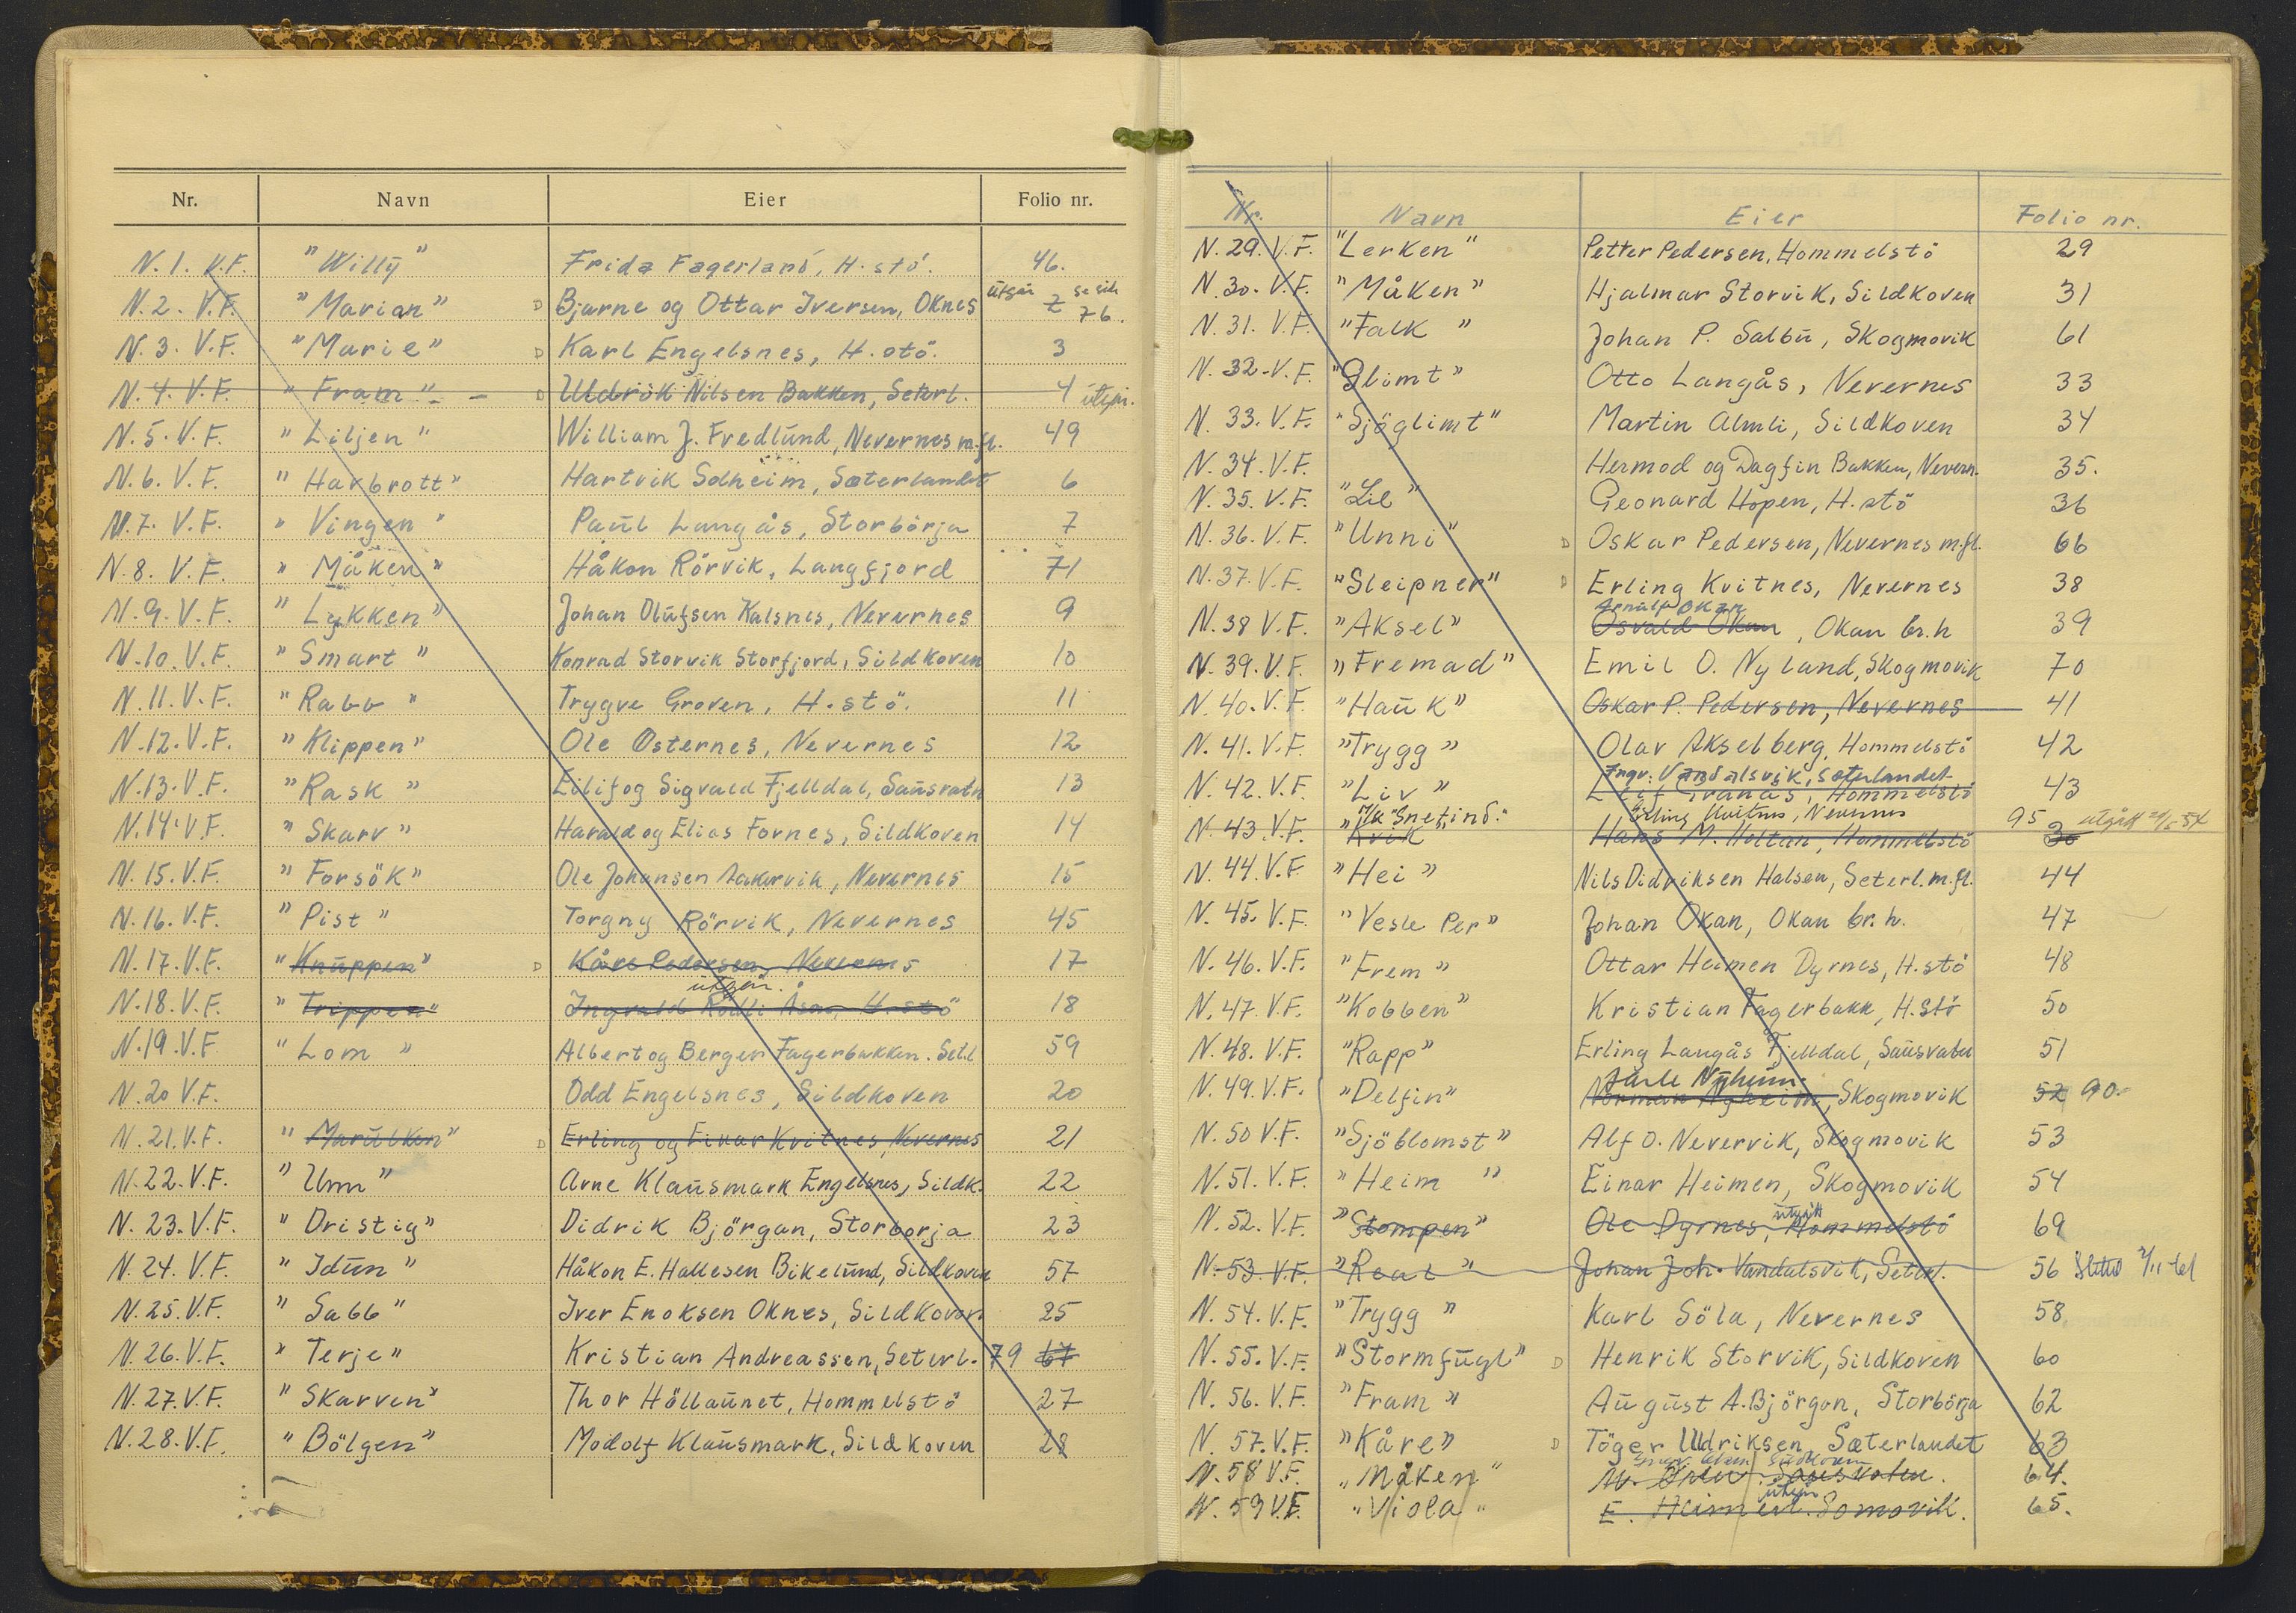 Nr. Navn Eier Folio nr.
N. 1. V.F. "Willy" Frida Fagerland, H.stö. 46.
N. 2. V.F. "Marian" D Bjarne og Ottar Iversen, Oknes utgår 2 se side 76.
N. 3. V.F. "Marie" D Karl Engelsnes, H.stö. 3
N. 4. V.F. "Fram" D Uldrik Nilsen Bakken, Seterl. 4 utgår.
N. 5. V.F. "Liljen" William J. Fredlund, Nevernes m.fl. 49
N. 6. V.F. "Havbrott" Hartvik Solheim, Sæterlandet 6
N. 7. V.F. "Vingen" Paul Langås, Storbörja 7
N. 8. V.F. "Måken" Håkon Rörvik, Langfjord 71
N. 9. V.F. "Lykken" Johan Olufsen Kalsnes, Nevernes 9
N. 10. V.F. "Smart" Konrad Storvik Storfjord, Sildkoven 10
N. 11. V.F. "Rabb" Trygve Groven, H.stö. 11
N. 12. V.F. "Klippen" Ole Osternes, Nevernes 12
N. 13. V.F. "Rask" Eilif og Sigvald Fjelldal, Sausvatn 13
N. 14. V.F. "Skarv" Harald og Elias Fornes, Sildkoven 14
N. 15. V.F. "Forsök" Ole Johansen Aakervik, Nevernes 15
N. 16. V.F. "Pist" Torgny Rörvik, Nevernes 45
N. 17. V.F. "Knuppen" D Kåre Pedersen, Nevernes 17
utgår.
N. 18. V.F. "Trippen" Ingvald Åsen H.stö 18
N. 19. V.F. "Lom" Albert og Berger Fagerbakken. Set.l 59
N. 20 V.F. Odd Engelsnes, Sildkoven 20
N. 21. V.F. "Marulken" D Erling og Einar Kvitnes, Nevernes 21
N. 22. V.F. "Unn" Arne Klausmark Engelsnes, Sildk. 22
N. 23. V.F. "Dristig" Didrik Björgan, Storborja 23
N. 24. V.F. "Idun" Håkon E. Hallesen Bikelund, Sildkoven 57
N. 25. V.F. "Sabb" Iver Enoksen Oknes, Sildkoven 25
N. 26. V.F. "Terje" Kristian Andreassen, Seterl. 79 67
N. 27. V.F. "Skarven" Thor Höllaunet, Hommelstö 27
N. 28. V.F. "Bölgen" Modolf Klausmark, Sildkoven 28
Nr. Navn Eier Folio nr.
N. 29. V.F. "Lerken" Petter Pedersen, Hommelstö 29
N. 30. V.F. "Måken" Hjalmar Storvik, Sildkoven 31
N. 31. V.F. "Falk" Johan P. Salbu, Skogmovik 61
N. 32. V.F. "Glimt" Otto Langås, Nevernes 33
N. 33. V.F. "Sjöglimt" Martin Almli, Sildkoven 34
N. 34. V.F. Hermod og Dagfin Bakken, Nevern. 35.
N. 35. V.F. "Lil" Geonard Hopen, H.stö 36
N. 36. V.F. "Unni" D Oskar Pedersen, Nevernes m.fl. 66
N. 37. V.F. "Sleipner" D Erling Kvitnes, Nevernes 38
Arnulf Okan
N. 38 V.F. "Aksel" Osvald Okan, Okan br.h 39
N. 39. V.F. "Fremad" Emil O. Nyland, Skogmovik 70
N. 40. V.F. "Hauk" Oskar P. Pedersen, Nevernes 41
N. 41. V.F. "Trygg" Olav Akselberg, Hommelstö 42
Ingv. Vandalsvik, Seterlandet
N. 42. V.F. "Liv" Leif Tranås, Hommelstö 43
M/k "Snetind." Erling Kvitnes, Nevernes 95 utgått 54
N. 43. V.F. "Kvik" Hans M. Holtan, Hommelstö 30
N. 44. V.F. "Hei" Nils Didriksen Halsen, Seterl. m.fl. 44
N. 45. V.F. "Vesle Per" Johan Okan, Okan br.h. 47
N. 46. V.F. "Frem" Ottar Heimen Dyrnes, H.stö 48
N. 47. V.F. "Kobben" Kristian Fagerbakk, H.stö 50
N. 48. V.F. "Rapp" Erling Langås Fjelldal, Sausvatn 51
Jarle Nyheim.
N. 49. V.F. "Delfin" Norman Nyheim, Skogmovik 52 90.
N. 50 V.F. "Sjöblomst" Alf O. Nevervik, Skogmovik 53
N. 51. V.F. "Heim" Einar Heimen, Skogmovik 54
utgått
N. 52. V.F. "Stompen" Ole Dyrnes, Hommelstö 69
N. 53 V.F. "Real" Johan Joh. Vandalsvik, Seterl. 56 Slettet 2/11-61
N. 54. V.F. "Trygg" Karl Söla, Nevernes 58
N. 55. V.F. "Stormfugl" D Henrik Storvik, Sildkoven 60
N. 56. V.F. "Fram" August A. Björgan, Storbörja 62
N. 57. V.F. "Kåre" D Töger Uldriksen, Sæterlandet 63
N. 58 V.F. "Måken" Sausvatn. 64.
utgår
N. 59 V.F. "Viola" E. Heimen. Somovik. 65.